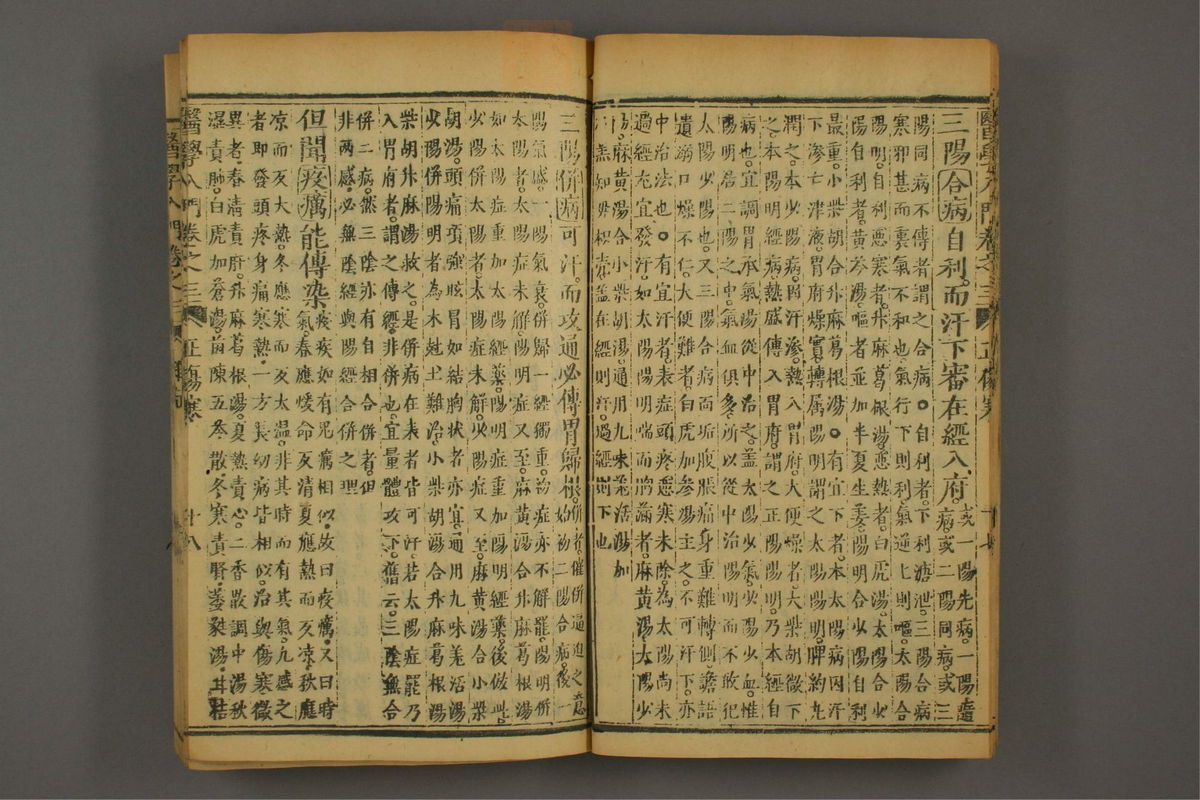 醫學入門卷之三 正傷寒
三陽合病自利而汗下審在經入府。或一陽先病一陽隨
病或二陽同病或三
陽同病不傳者謂之合病。自利者下利溏泄三陽合病
寒邪甚而裏氣不和也氣行下則利氣逆上則嘔太陽合
陽明自利惡寒者升麻葛根湯惡熱者白虎湯太陽合少
陽自利者黃芩湯嘔者並加半夏生姜陽明合少陽自利
最重小柴胡合升麻葛根湯。有宜下者本太陽病因汗
下滲亡津液胃府燥實轉属陽明謂之太陽陽明脾約丸
潤之本少陽病因汗滲熱入胃府大便燥者大柴胡微下
之本陽明經病熱盛傳入胃府謂之正陽陽明乃本經自
病也宜調胃承氣湯從中治之盖太陽少氣少陽少血惟
陽明居二陽之中氣血俱多所以從中治陽明而不敢犯
太陽少陽也又三陽合病面垢腹脹痛身重難轉側譫語
遺溺口燥不仁大便難者白虎加參湯主之不可汗下亦
中治法也。有宜汗者表症頭疼惡寒未除為太陽尚未
過經尤宜發汗如太陽陽明喘而胸滿者麻黃湯太陽少
陽麻黃湯合小柴胡湯通用九味羌活湯加
盖在經則汗過經則下也
三陽併病可汗而攻通必傳胃歸根。併者催併逼迫之意
始初二陽合病後一
陽氣盛一陽氣衰併歸一經獨重初症亦不解罷陽明併
太陽者太陽症未解陽明症又至麻黃湯合升麻葛根湯
如太陽症重加太陽經藥陽明症重加陽明經藥後倣此
少陽併太陽者太陽症未解少陽症又至麻黃湯合小柴
胡湯頭痛項強眩冒如結胸状者亦宜通用九味羌活湯
少陽併陽明者為木尅土難治小柴胡湯合升麻葛根湯
柴胡升麻湯救之是併病在表者皆可汗若太陽症罷乃
入胃府者謂之傳經非併也宜量體攻下舊云三陰無合
併二病然三陰亦有自相合併者但
非兩感必無陰經與陽經合併之理
但聞疫癘能傳染。疫疾如有鬼癘相似故曰疫癘又曰時
氣春應暖而反清夏應熱而反凉秋應
凉而反大熱冬應寒而反太温非其時而有其氣凡感之
者即發頭疼身痛寒熱一方長幼病皆相似治與傷寒微
異者春清責肝升麻葛根湯夏熱責心二香散調中湯秋
濕責肺白虎加蒼朮湯茵陳五苓散冬寒責腎萎蕤湯甘桔
醫學入門卷之三 正傷寒 十八